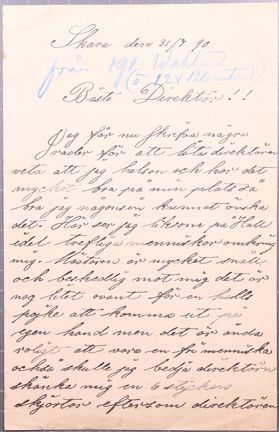 Skara den 31/7 90
från 191 Wahlund
(o 124 Blomstrand)
Bäste Direktör!!
Jag får nu skrifva några
rader för att låta direktören
veta att jag helsen och har det
mycket bra på min plats så
bra jag någonsin kunnat önska
det. Här ser jag liksom på Hall
idel trefliga menniskor omkring
mig. Mästaren är mycket snäll
och beskedlig mot mig det är
nog litet ovant för en halle
pojke att komma ut på
egen hand men det är ända
roligt att vara en fri menniska
ochså skulle jag bedja direktören
skänka mig en 6 stycken
skjortor eftersom direktören